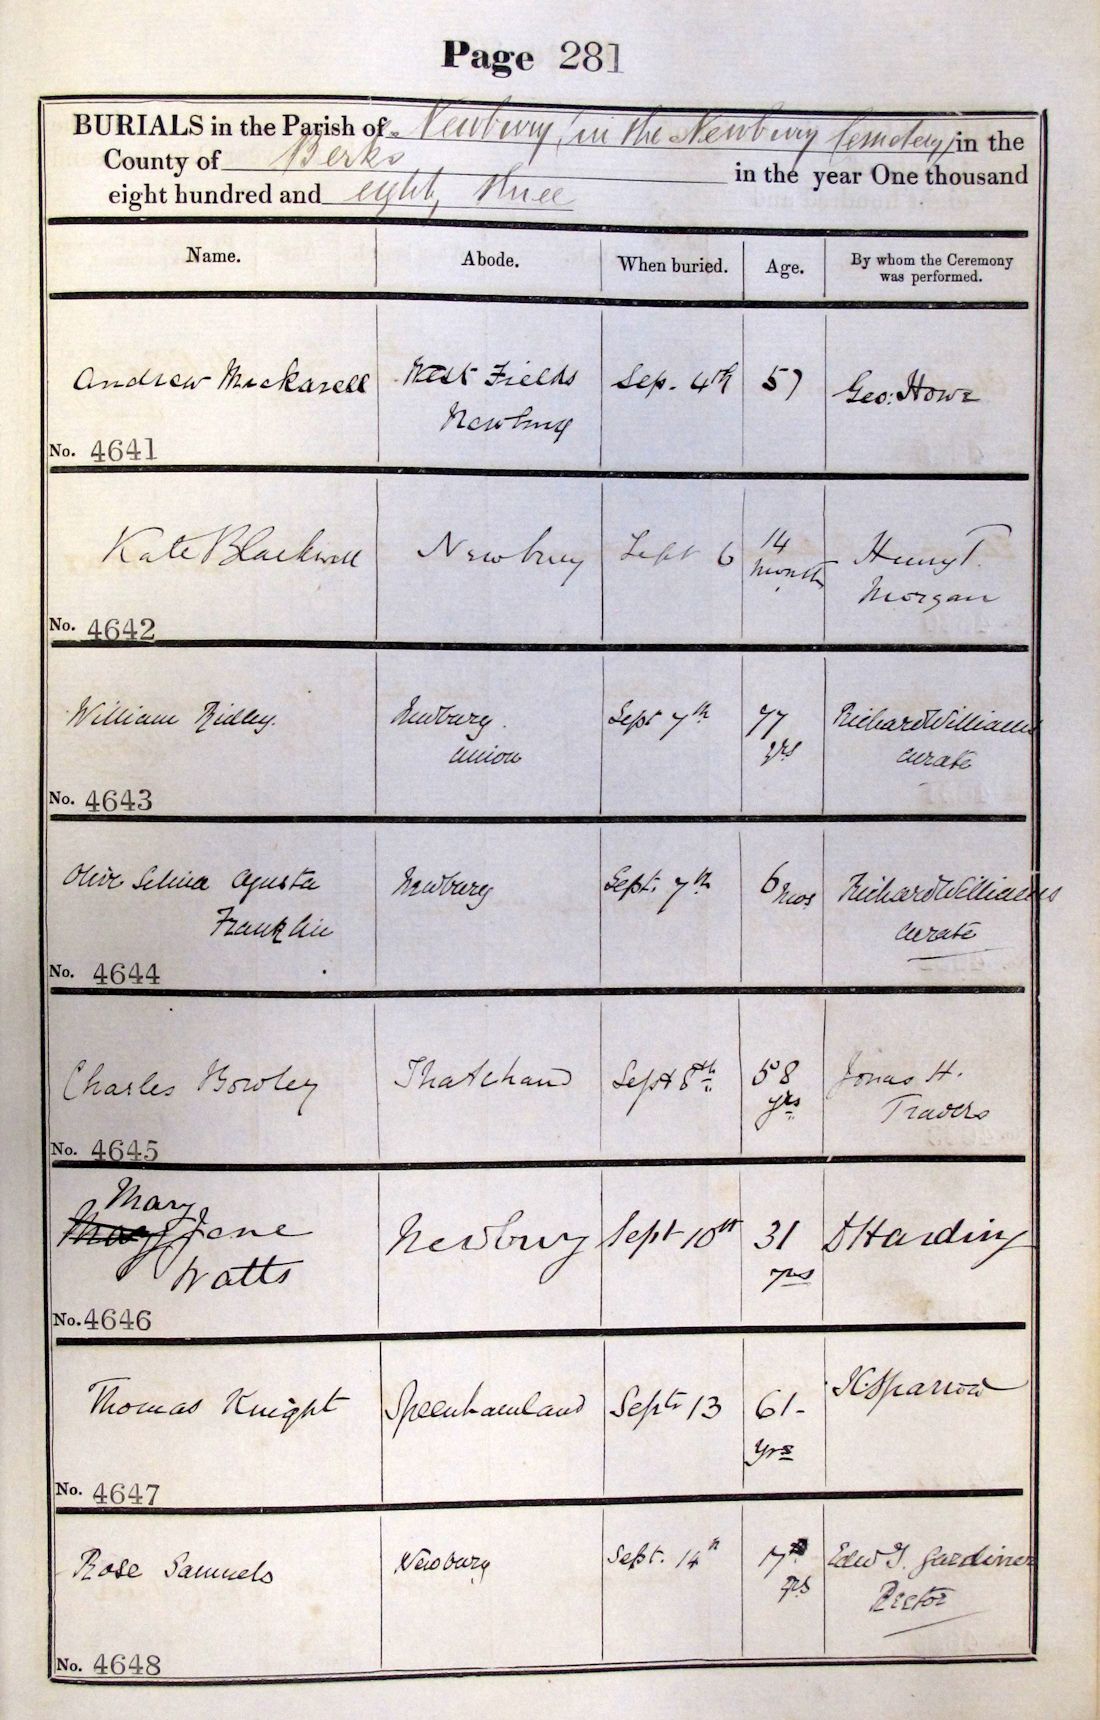 Page 281
BURIALS in the Parish of Newbury, in the Newbury Cemetery, in the
County of Berks in the year One thousand
eight hundred and eighty three
Name. Abode. When buried. Age. By whom the Ceremony
was performed.
Andrew Mackarell West Fields Sep. 4th 57 Geo: Howe
Newbury
No. 4641
Kate Blackwell Newbury Sept 6 14 Henry T.
months Morgan
No. 4642
William Ridley Newbury Sept 7th 77 Richard Williams
Union yrs curate
No. 4643
Olive Selina Agusta Newbury Sept. 7th 6 mos Richard Williams
Franklin curate
No. 4644
Charles Bowley Thatcham Sept 8th 58 Jonas H.
yrs Travers
No. 4645
Mary
Jane Newbury Sept 10th 31 Harding
Watts yrs
No. 4646
Thomas Knight Speenhamland Sept 13 61- Sparrow
yrs
No. 4647
Rose Samuels Newbury Sept. 14th 7 Edw T. Gardiner
yrs Rector
No. 4648